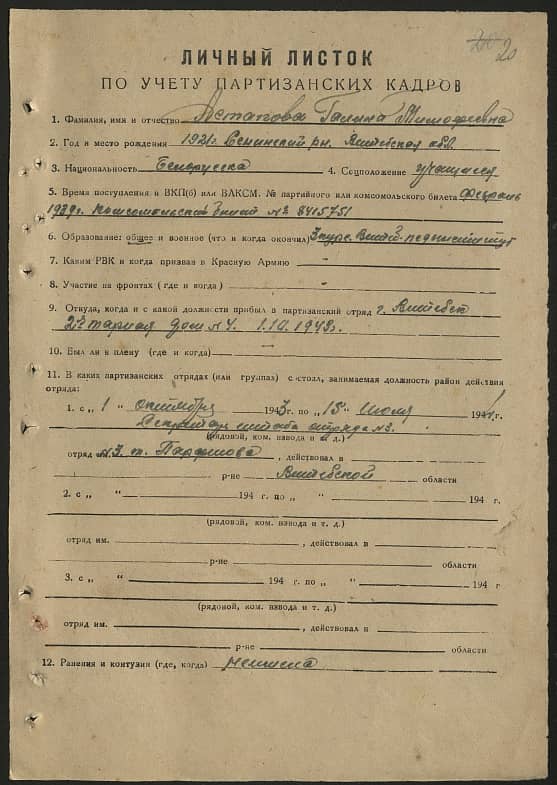 20
ЛИЧНЫЙ ЛИСТОК
ПО УЧЕТУ ПАРТИЗАНСКИХ КАДРОВ
1. Фамилия, имя и отчество Астапова Галина Тимофеевна
2. Год и место рождения 1921г. Сенинский рн. Витебская обл.
3. Национальность Белорусска 4. Соцположение учащаяся
5. Время поступления в ВКП(б) или ВЛКСМ. № партийного или комсомольского билета февраль
1939г. Комсомольский билет № 8415751
6. Образование: общее и военное (что и когда окончил) 3 курс. Витеб. пединститут
7. Каким РВК и когда призван в Красную Армию -
8. Участие на фронтах (где и когда) -
9. Откуда, когда и с какой должности прибыл в партизанский отряд г. Витебск
дом № 4. 1.10.1943г.
10. Был ли в плену (где и когда)
11. В каких партизанских отрядах (или группах) состоял, занимаемая должность район действия
отряда:
1. с „ 1 “ октября 1943 г. по „ 15 “ июля 1944 г.
Секретарь штаба отряда №3.
(рядовой, ком. взвода и т. д.)
отряд №3 т. Парфимова, действовал в
р-не Витебской области
2. с „ “ 194 г. по „ “ 194 г.
(рядовой, ком. взвода и т. д.)
отряд им. , действовал в
р-не области
3. с „ “ 194 г. по „ “ 194 г
(рядовой, ком. взвода и т. д.)
отряд им. , действовал в
р-не области
12. Ранения и контузии (где, когда) не имела